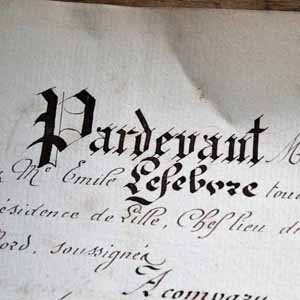 Pardevant M
Me Emile Lefebvre tou
ésidence de Lille, Chef lieu d
ord, soussignés
A comparu